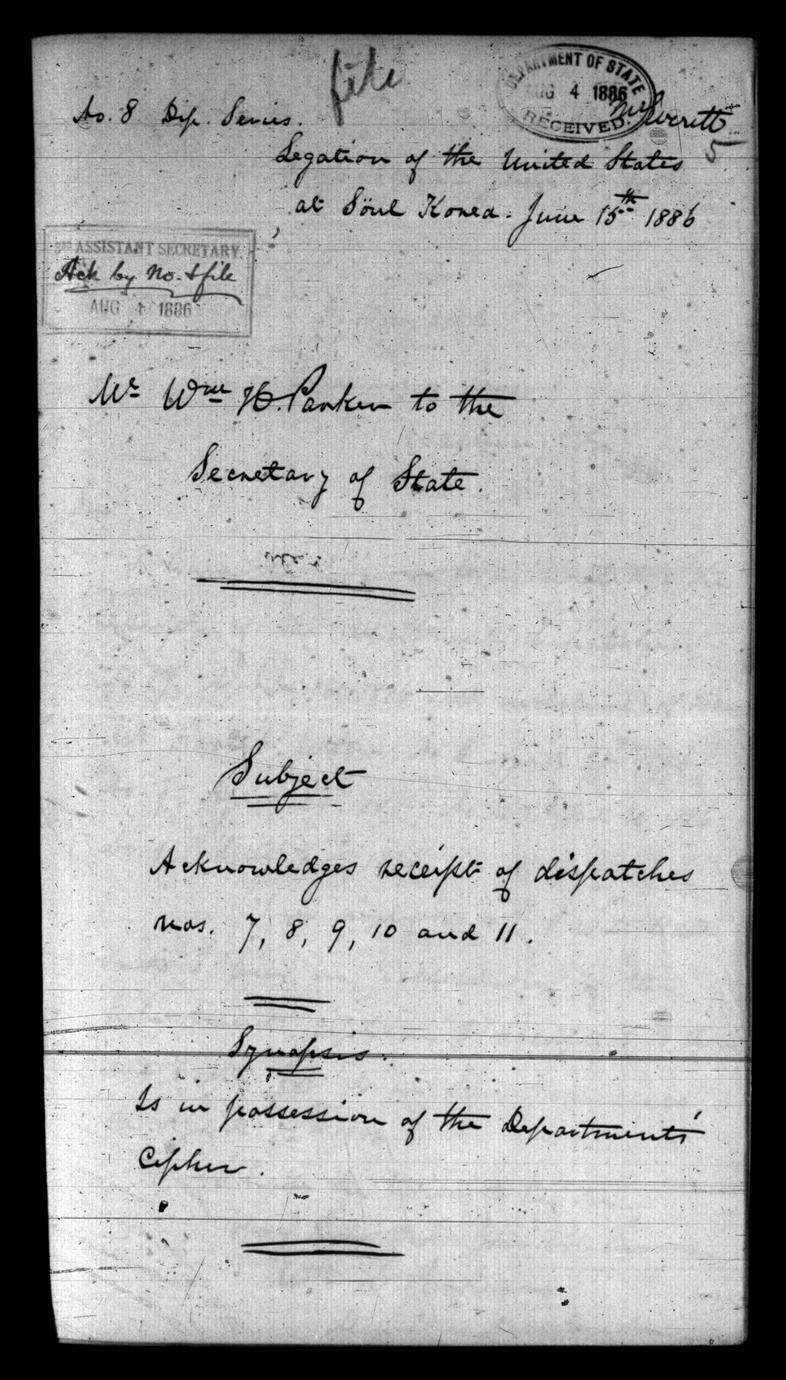 file
DEPARTMENT OF STATE
AUG 4 1886
RECEIVED.
No. 8 Dip. Series.
Mr Everett
5
Legation of the United States
at Söul Korea. June 15th 1886
ASSISTANT SECRETARY.
Ack by No. & file
AUG 4 1886
Mr Wm H. Parker to the
Secretary of State.
Subject
Acknowledges receipt of dispatches
nos. 7, 8, 9, 10 and 11.
Synopsis.
Is in possession of the Departments'
Cipher.